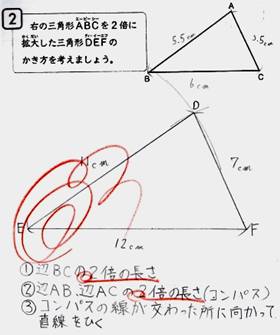 2
右の三角形ABCを2倍に
拡大した三角形DEFの
かき方を考えましょう。
A
5.5cm
3.5cm
B
6cm
C
D
11cm
7cm
E
12cm
F
①辺BCの2倍の長さ
②辺AB、辺ACの2倍の長さ(コンパス)
③コンパスの線が交わった所に向かって
直線をひく